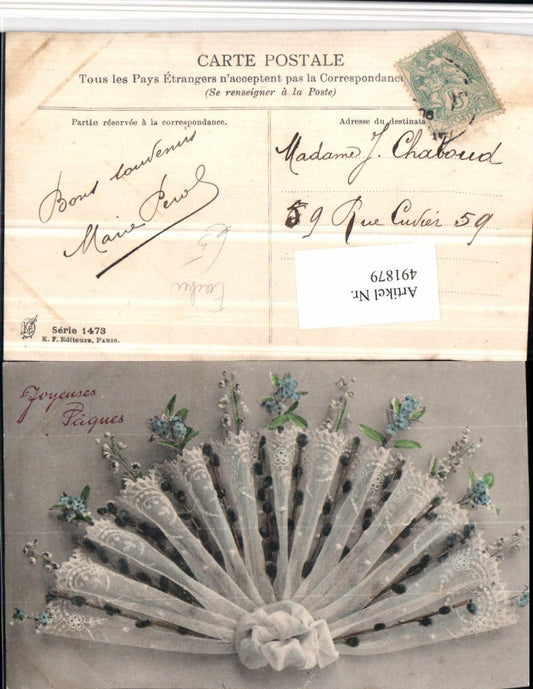 CARTE POSTALE
Tous les Pays Étrangers n'acceptent pas la Correspondance
(Se renseigner à la Poste)
Partie réservée à la correspondance.
Adresse du destinata
Bons souvenirs
Marie
Madame J. Chaboud
59 Rue Cuvier 59
Artikel Nr.
491879
Série 1473
K. F. Editeurs, Paris.
Joyeuses
Pâques